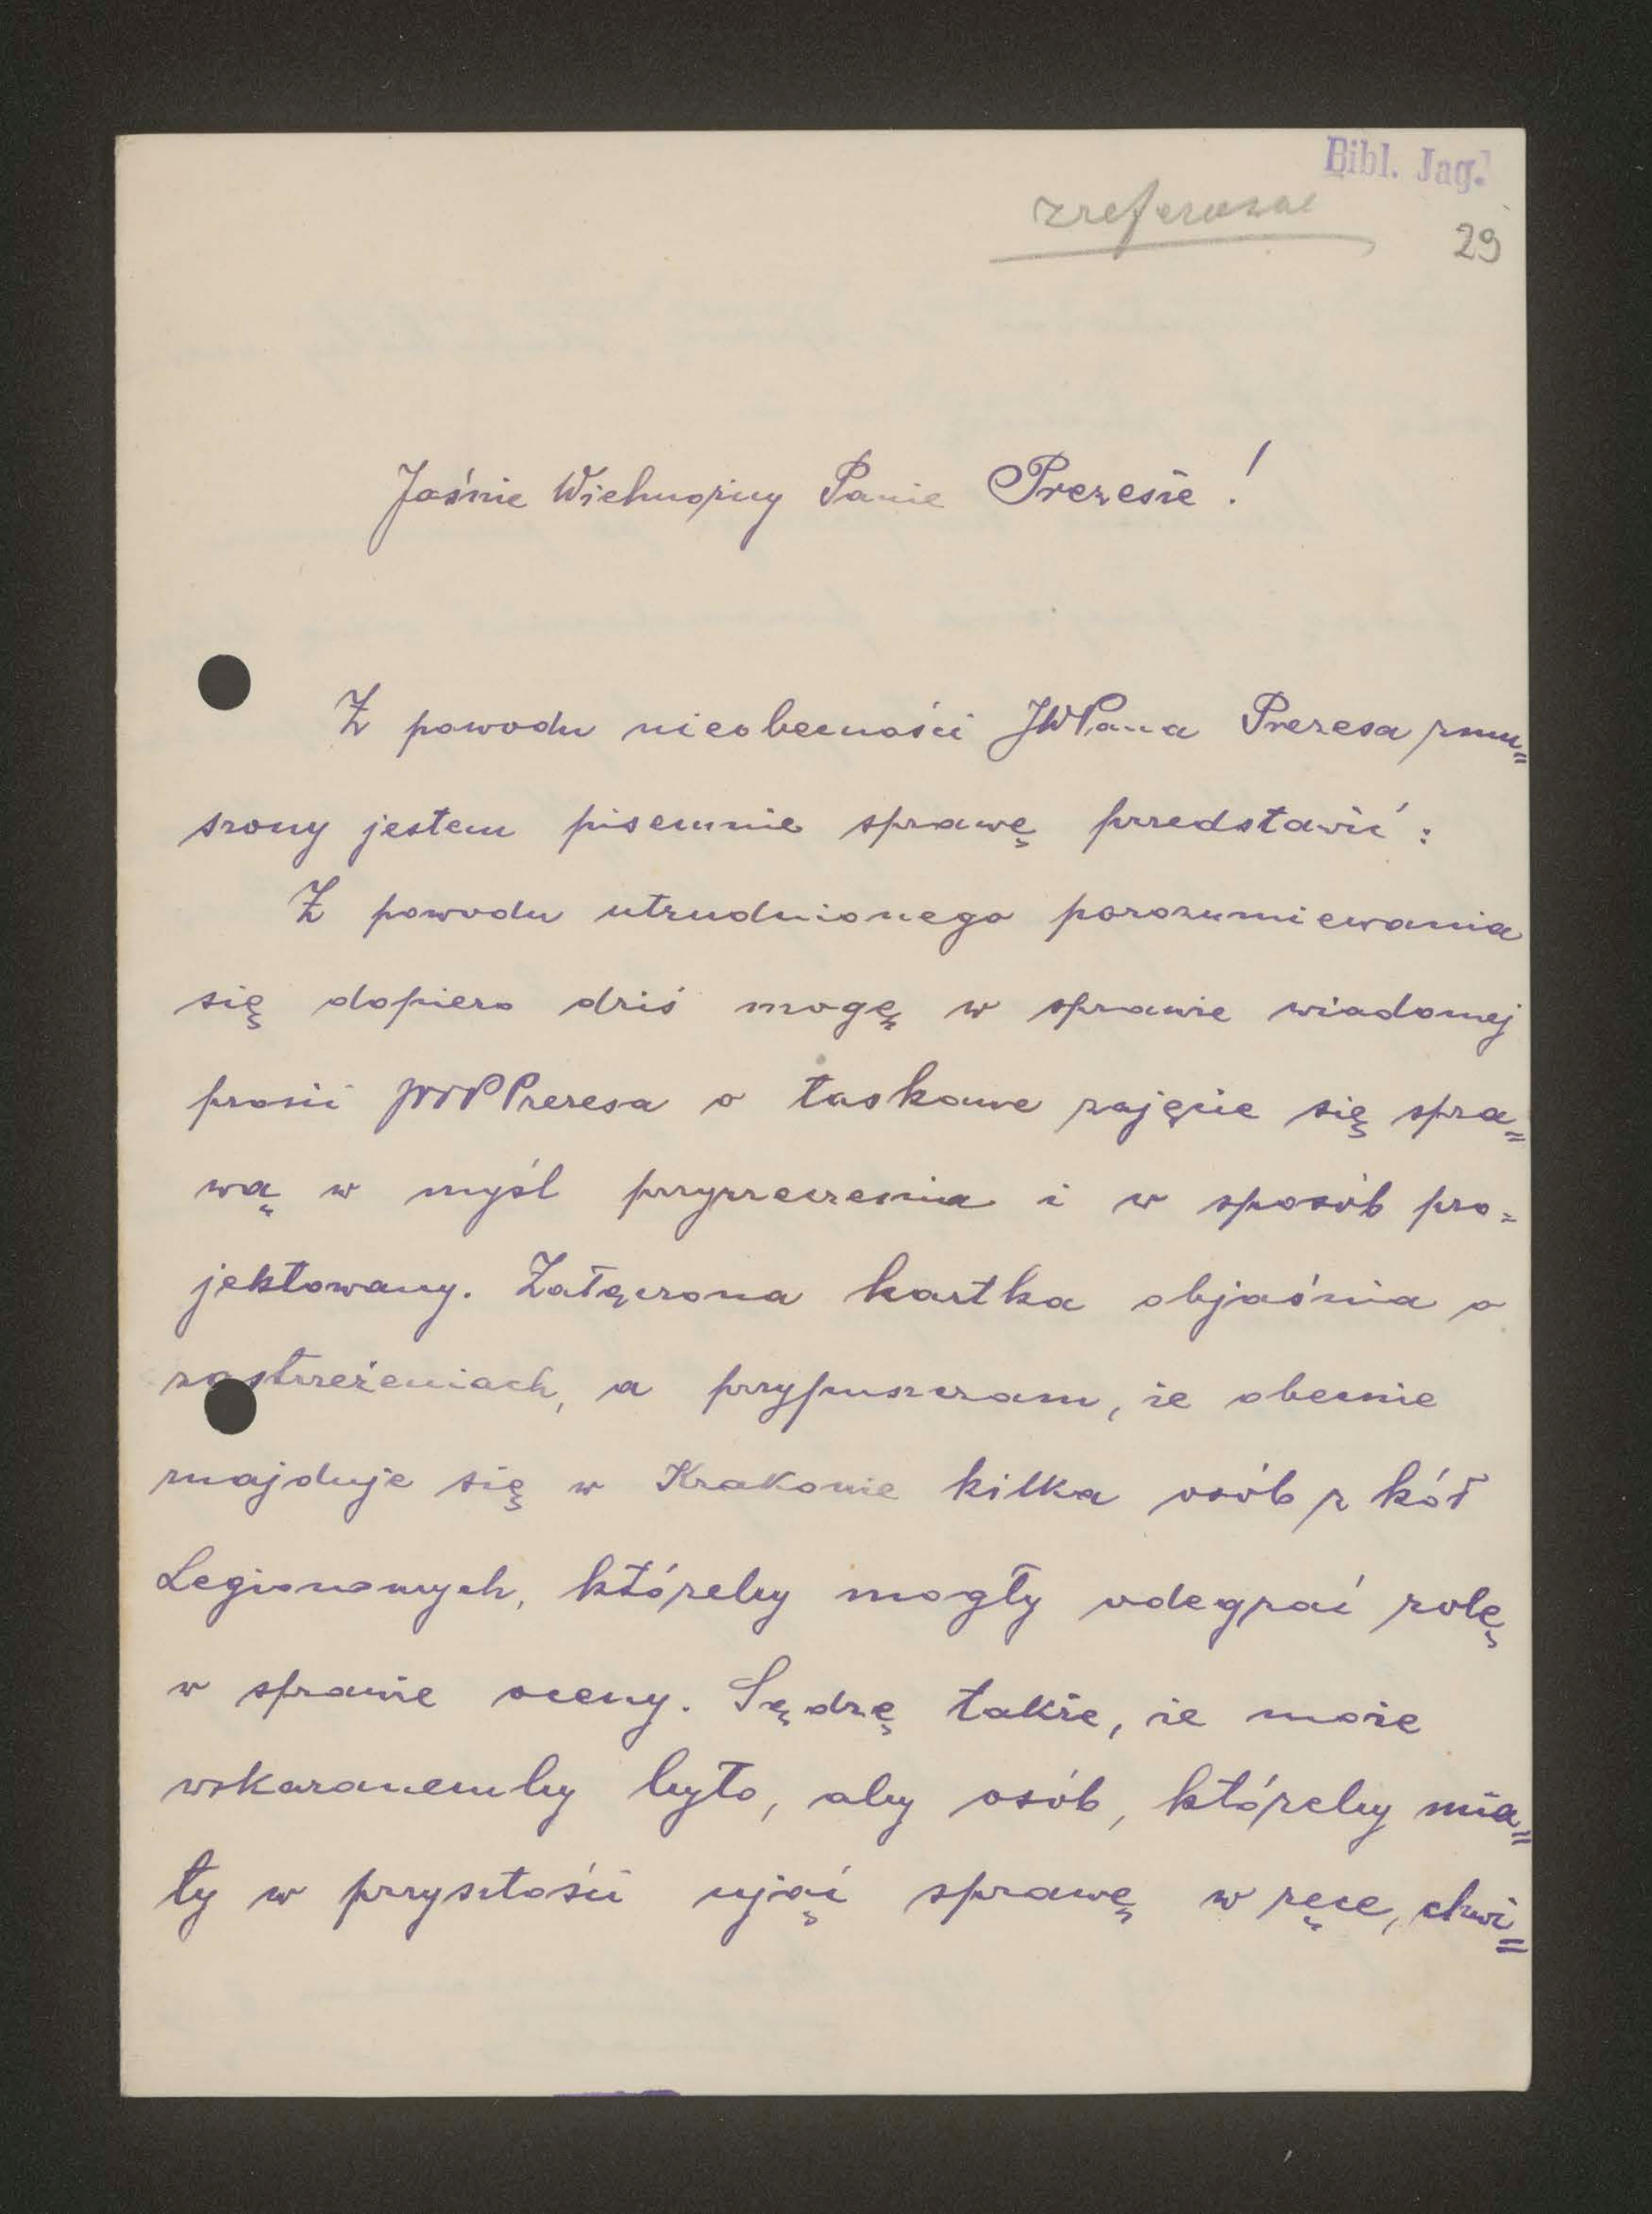 Bibl. Jag.
zreferować
29
Jaśnie Wielmożny Panie Prezesie!
Z powodu nieobecności JWPana Prezesa zmu=
szony jestem pisemnie sprawę przedstawić:
Z powodu utrudnionego porozumiewania
się dopiero dziś mogę w sprawie wiadomej
prosić JWPPrezesa o łaskawe zajęcie się spra=
wą w myśl przyrzeczenia i w sposób pro=
jektowany. Załączona kartka objaśnia o
zastrzeżeniach, a przypuszczam, że obecnie
znajduje się w Krakowie kilka osób z kół
Legionowych, któreby mogły odegrać rolę
w sprawie oceny. Sądzę także, że może
wskazanemby było, aby osób, któreby mia=
ły w przyszłości ująć sprawę w ręce, chwi=